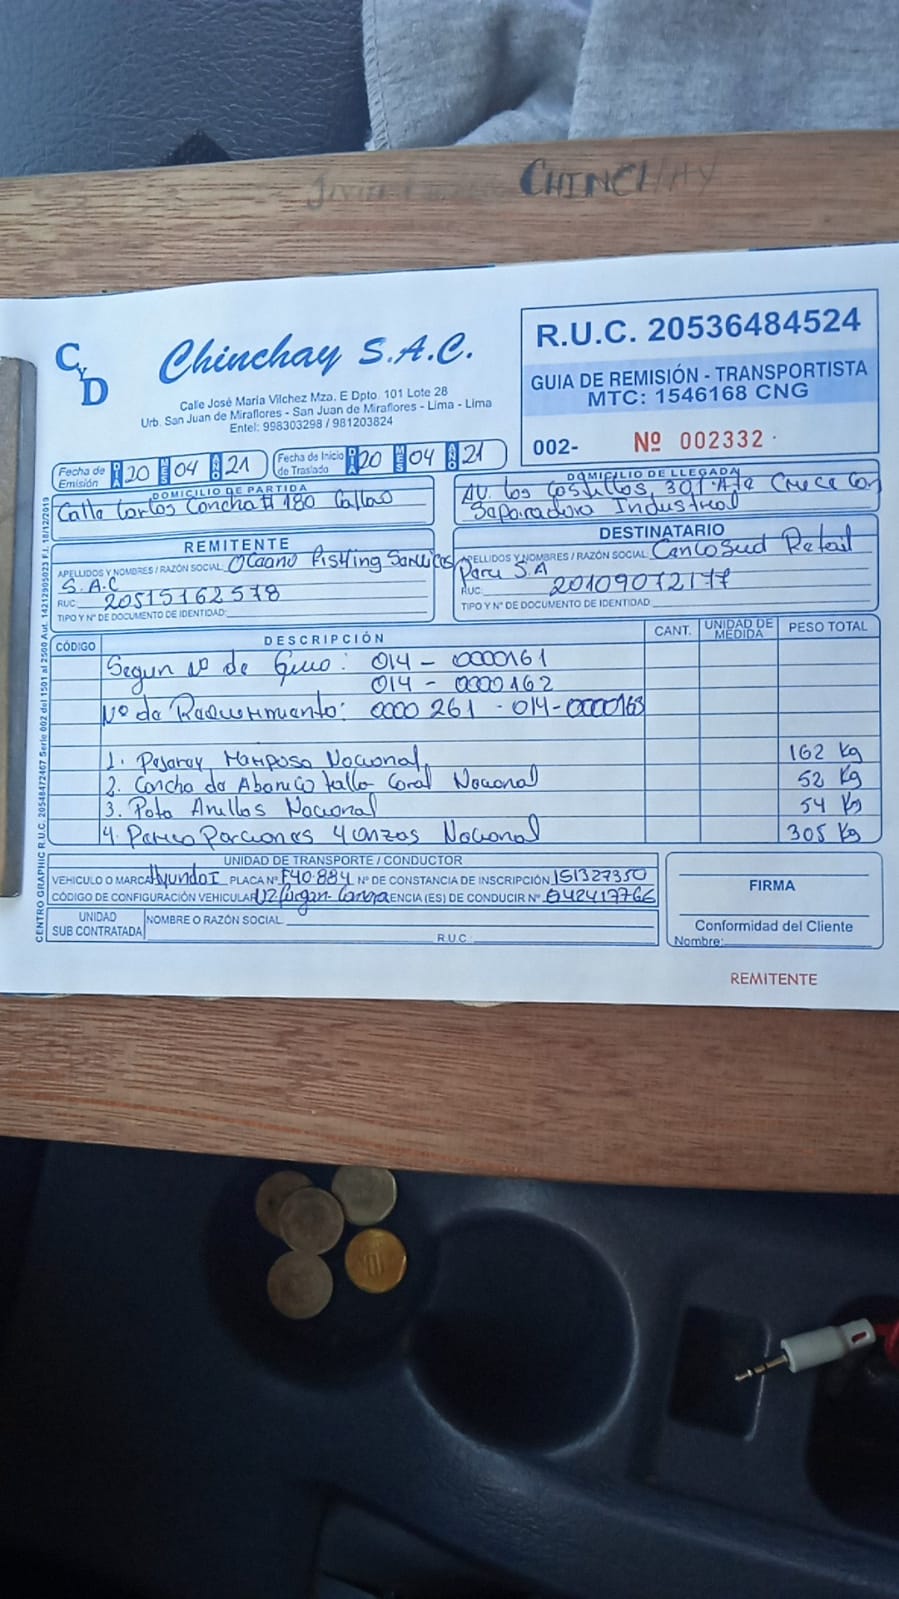 CHINCHAY
C y D
Chinchay S.A.C.
Calle José María Vilchez Mza. E Dpto. 101 Lote 28
Urb. San Juan de Miraflores - San Juan de Miraflores - Lima - Lima
Entel: 998303298 / 981203824
R.U.C. 20536484524
GUIA DE REMISIÓN - TRANSPORTISTA
MTC: 1546168 CNG
002- Nº 002332
Fecha de Emisión DIA 20 MES 04 AÑO 21
Fecha de Inicio de Traslado DIA 20 MES 04 AÑO 21
DOMICILIO DE PARTIDA
Calle Carlos Concha # 180 Callao
DOMICILIO DE LLEGADA
AV. los 301 Ate Cruce Con
Industrial
REMITENTE
APELLIDOS Y NOMBRES / RAZÓN SOCIAL: Oceano Fishing
S.A.C
RUC: 20515162578
TIPO Y Nº DE DOCUMENTO DE IDENTIDAD:
DESTINATARIO
APELLIDOS Y NOMBRES / RAZÓN SOCIAL: Cencosud Retail
Peru S.A
RUC: 20109072177
TIPO Y Nº DE DOCUMENTO DE IDENTIDAD
CÓDIGO DESCRIPCIÓN CANT. UNIDAD DE MEDIDA PESO TOTAL
Segun Nº de Guia: 014 - 0000161
014 - 0000162
Nº de Requerimiento: 0000 261 - 014-0000163
1. Pejerey Mariposa Nacional 162 Kg
2. Concha de Abanico tallo Coral Nacional 52 Kg
3. Pota Anillos Nacional 54 Kg
4. Perico Porciones 4 onzas Nacional 305 Kg
UNIDAD DE TRANSPORTE / CONDUCTOR
VEHICULO O MARCA Hyundai PLACA Nº F40.884 Nº DE CONSTANCIA DE INSCRIPCIÓN 151327350
CÓDIGO DE CONFIGURACIÓN VEHICULAR ENCIA (ES) DE CONDUCIR Nº Q42417766
UNIDAD SUB CONTRATADA
NOMBRE O RAZÓN SOCIAL
R.U.C.
FIRMA
Conformidad del Cliente
Nombre:
REMITENTE
CENTRO GRAPHIC R.U.C. 20548472467 Serie 002 del 1501 al 2500 Aut. 14212905023 F.I. 18/12/2019